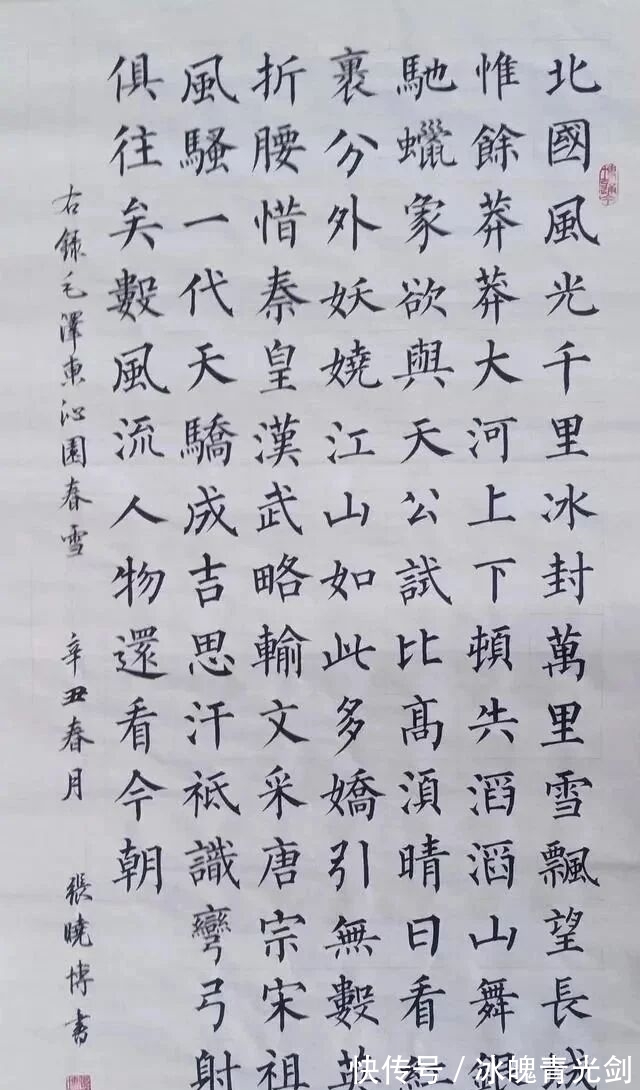 北國風光千里冰封萬里雪飄望長城
惟餘莽莽大河上下頓失滔滔山舞銀
馳蠟象欲與天公試比高須晴日看紅
裹分外妖嬈江山如此多嬌引無數英
折腰惜秦皇漢武略輸文采唐宗宋祖
風騷一代天驕成吉思汗祗識彎弓射
俱往矣數風流人物還看今朝
右錄毛澤東沁園春雪 辛丑春月 張曉博書
快传号/冰魄青光剑